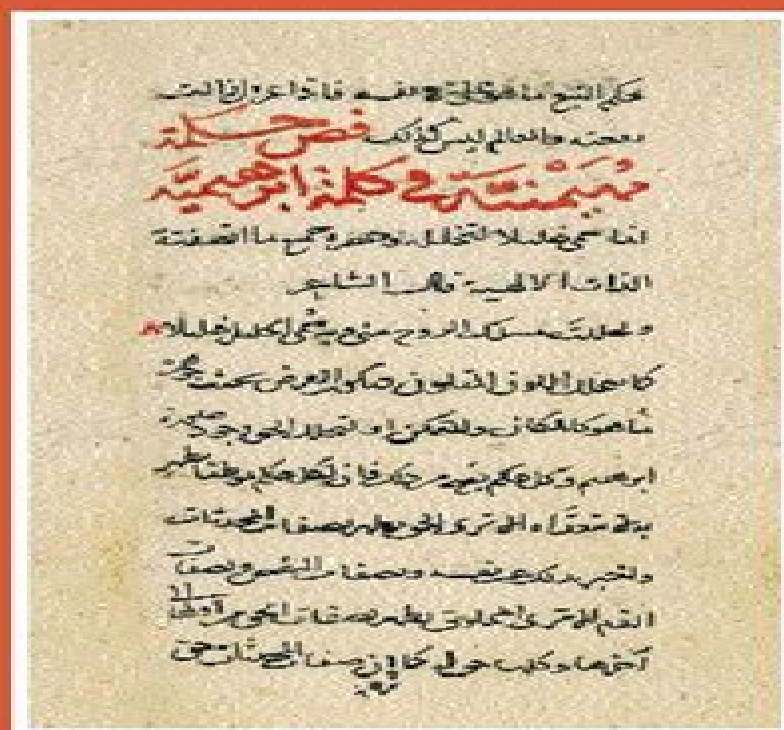 ما هو عليه في نفسه
والعالم ليس كذلك فص حكمة
مهيمنية في كلمة ابرهيمية
انما سمي خليلا لتخلله وحصره جميع ما اتصفت به
الذات الالهية قال الشاعر
وتخللت مسلك الروح مني وبه سمي الخليل خليلا
كما يتخلل اللون المتلون فيكون العرض بحيث جوهره
ما هو كالمكان والمتمكن او لتخلل الحق وجود صورة
ابرهيم وكل حكم يصح من ذلك فان لكل حكم موطنا يظهر
به الا ترى الحق يظهر بصفات المحدثات
واخبر بذلك عن نفسه وبصفات النقص وبصفات
الذم الا ترى المخلوق يظهر بصفات الحق من اولها الى
آخرها وكلها حق له كما ان صفات المحدثات حق